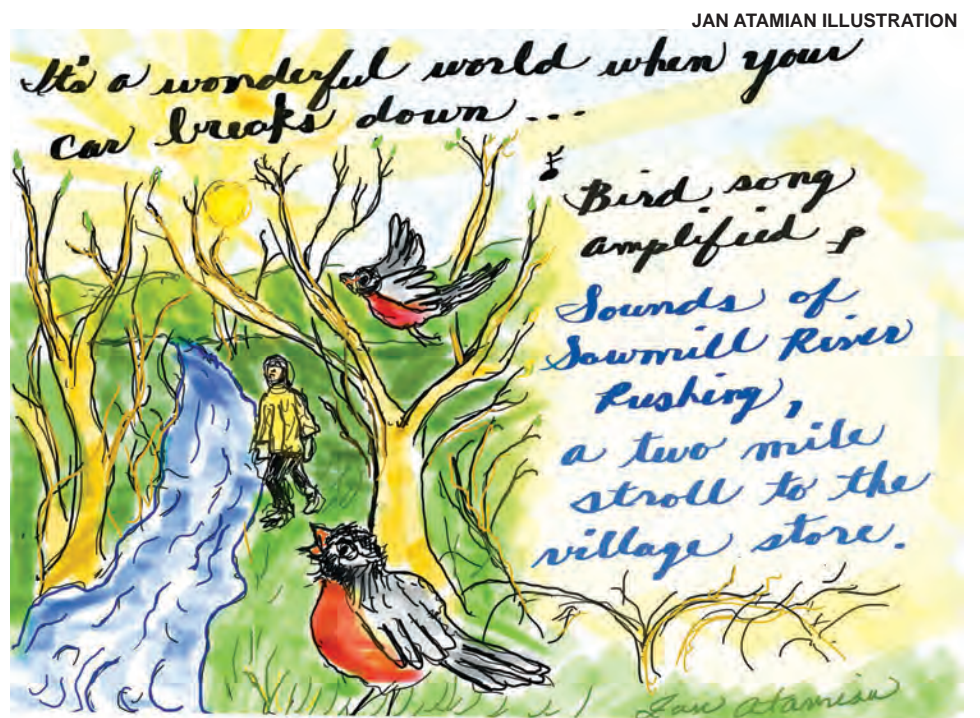 JAN ATAMIAN ILLUSTRATION
It's a wonderful world when your
car breaks down ...
Bird song
amplified,
Sounds of
Sawmill River
Rushing,
a two mile
stroll to the
village store.
Jan Atamian